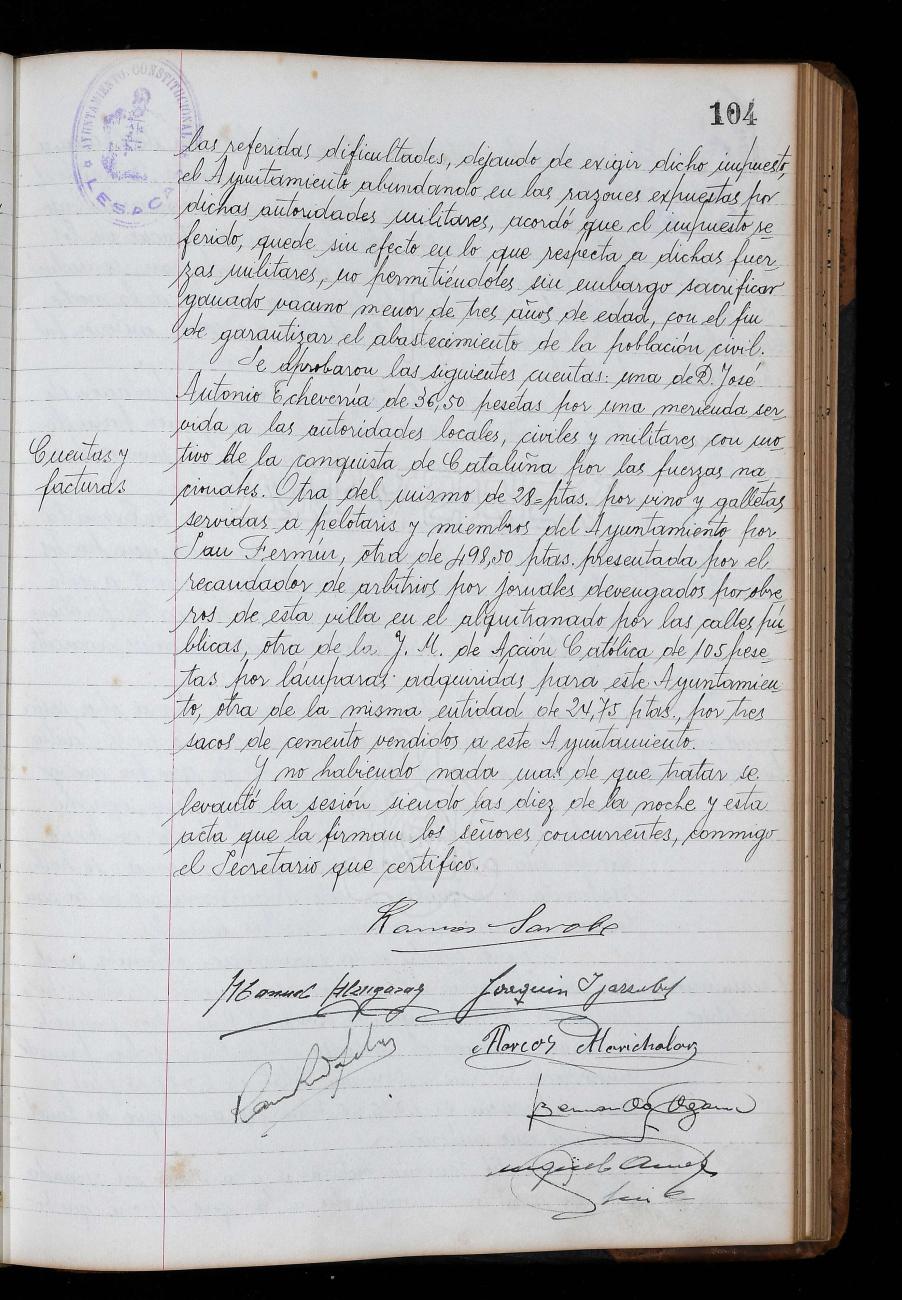 AYUNTAMIENTO CONSTITUCIONAL
LESACA
104
las referidas dificultades, dejando de exigir dicho impuesto,
el Ayuntamiento abundando en las razones expuestas por
dichas autoridades militares, acordó que el impuesto re-
ferido, quede sin efecto en lo que respecta a dichas fuer-
zas militares, no permitiéndoles sin embargo sacrificar
ganado vacuno menor de tres años de edad, con el fin
de garantizar el abastecimiento de la población civil.
Se aprobaron las siguientes cuentas: una de D. José
Antonio Echeverría de 36,50 pesetas por una merienda ser-
vida a las autoridades locales, civiles y militares con mo-
Cuentas y
facturas
tivo de la conquista de Cataluña por las fuerzas na-
cionales. Otra del mismo de 28= ptas. por vino y galletas
servidas a pelotaris y miembros del Ayuntamiento por
San Fermín, otra de 498,50 ptas. presentada por el
recaudador de arbitrios por jornales devengados por obre-
ros de esta villa en el alquitranado por las calles pú-
blicas, otra de la J. M. de Acción Católica de 105 pese-
tas por lámparas adquiridas para este Ayuntamien-
to, otra de la misma entidad de 24,75 ptas., por tres
sacos de cemento vendidos a este Ayuntamiento.
Y no habiendo nada mas de que tratar se
levantó la sesión siendo las diez de la noche y esta
acta que la firman los señores concurrentes, conmigo
el Secretario que certifico.
Ramón Sarobe
Manuel Joaquin
Marcos Marichalar